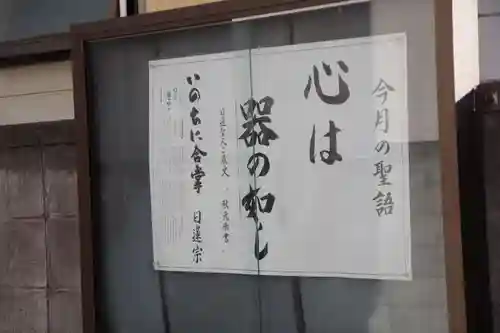 今月の聖語
心は
器の如し
日蓮聖人ご承文 秋元御書
いのちに合掌 日蓮宗